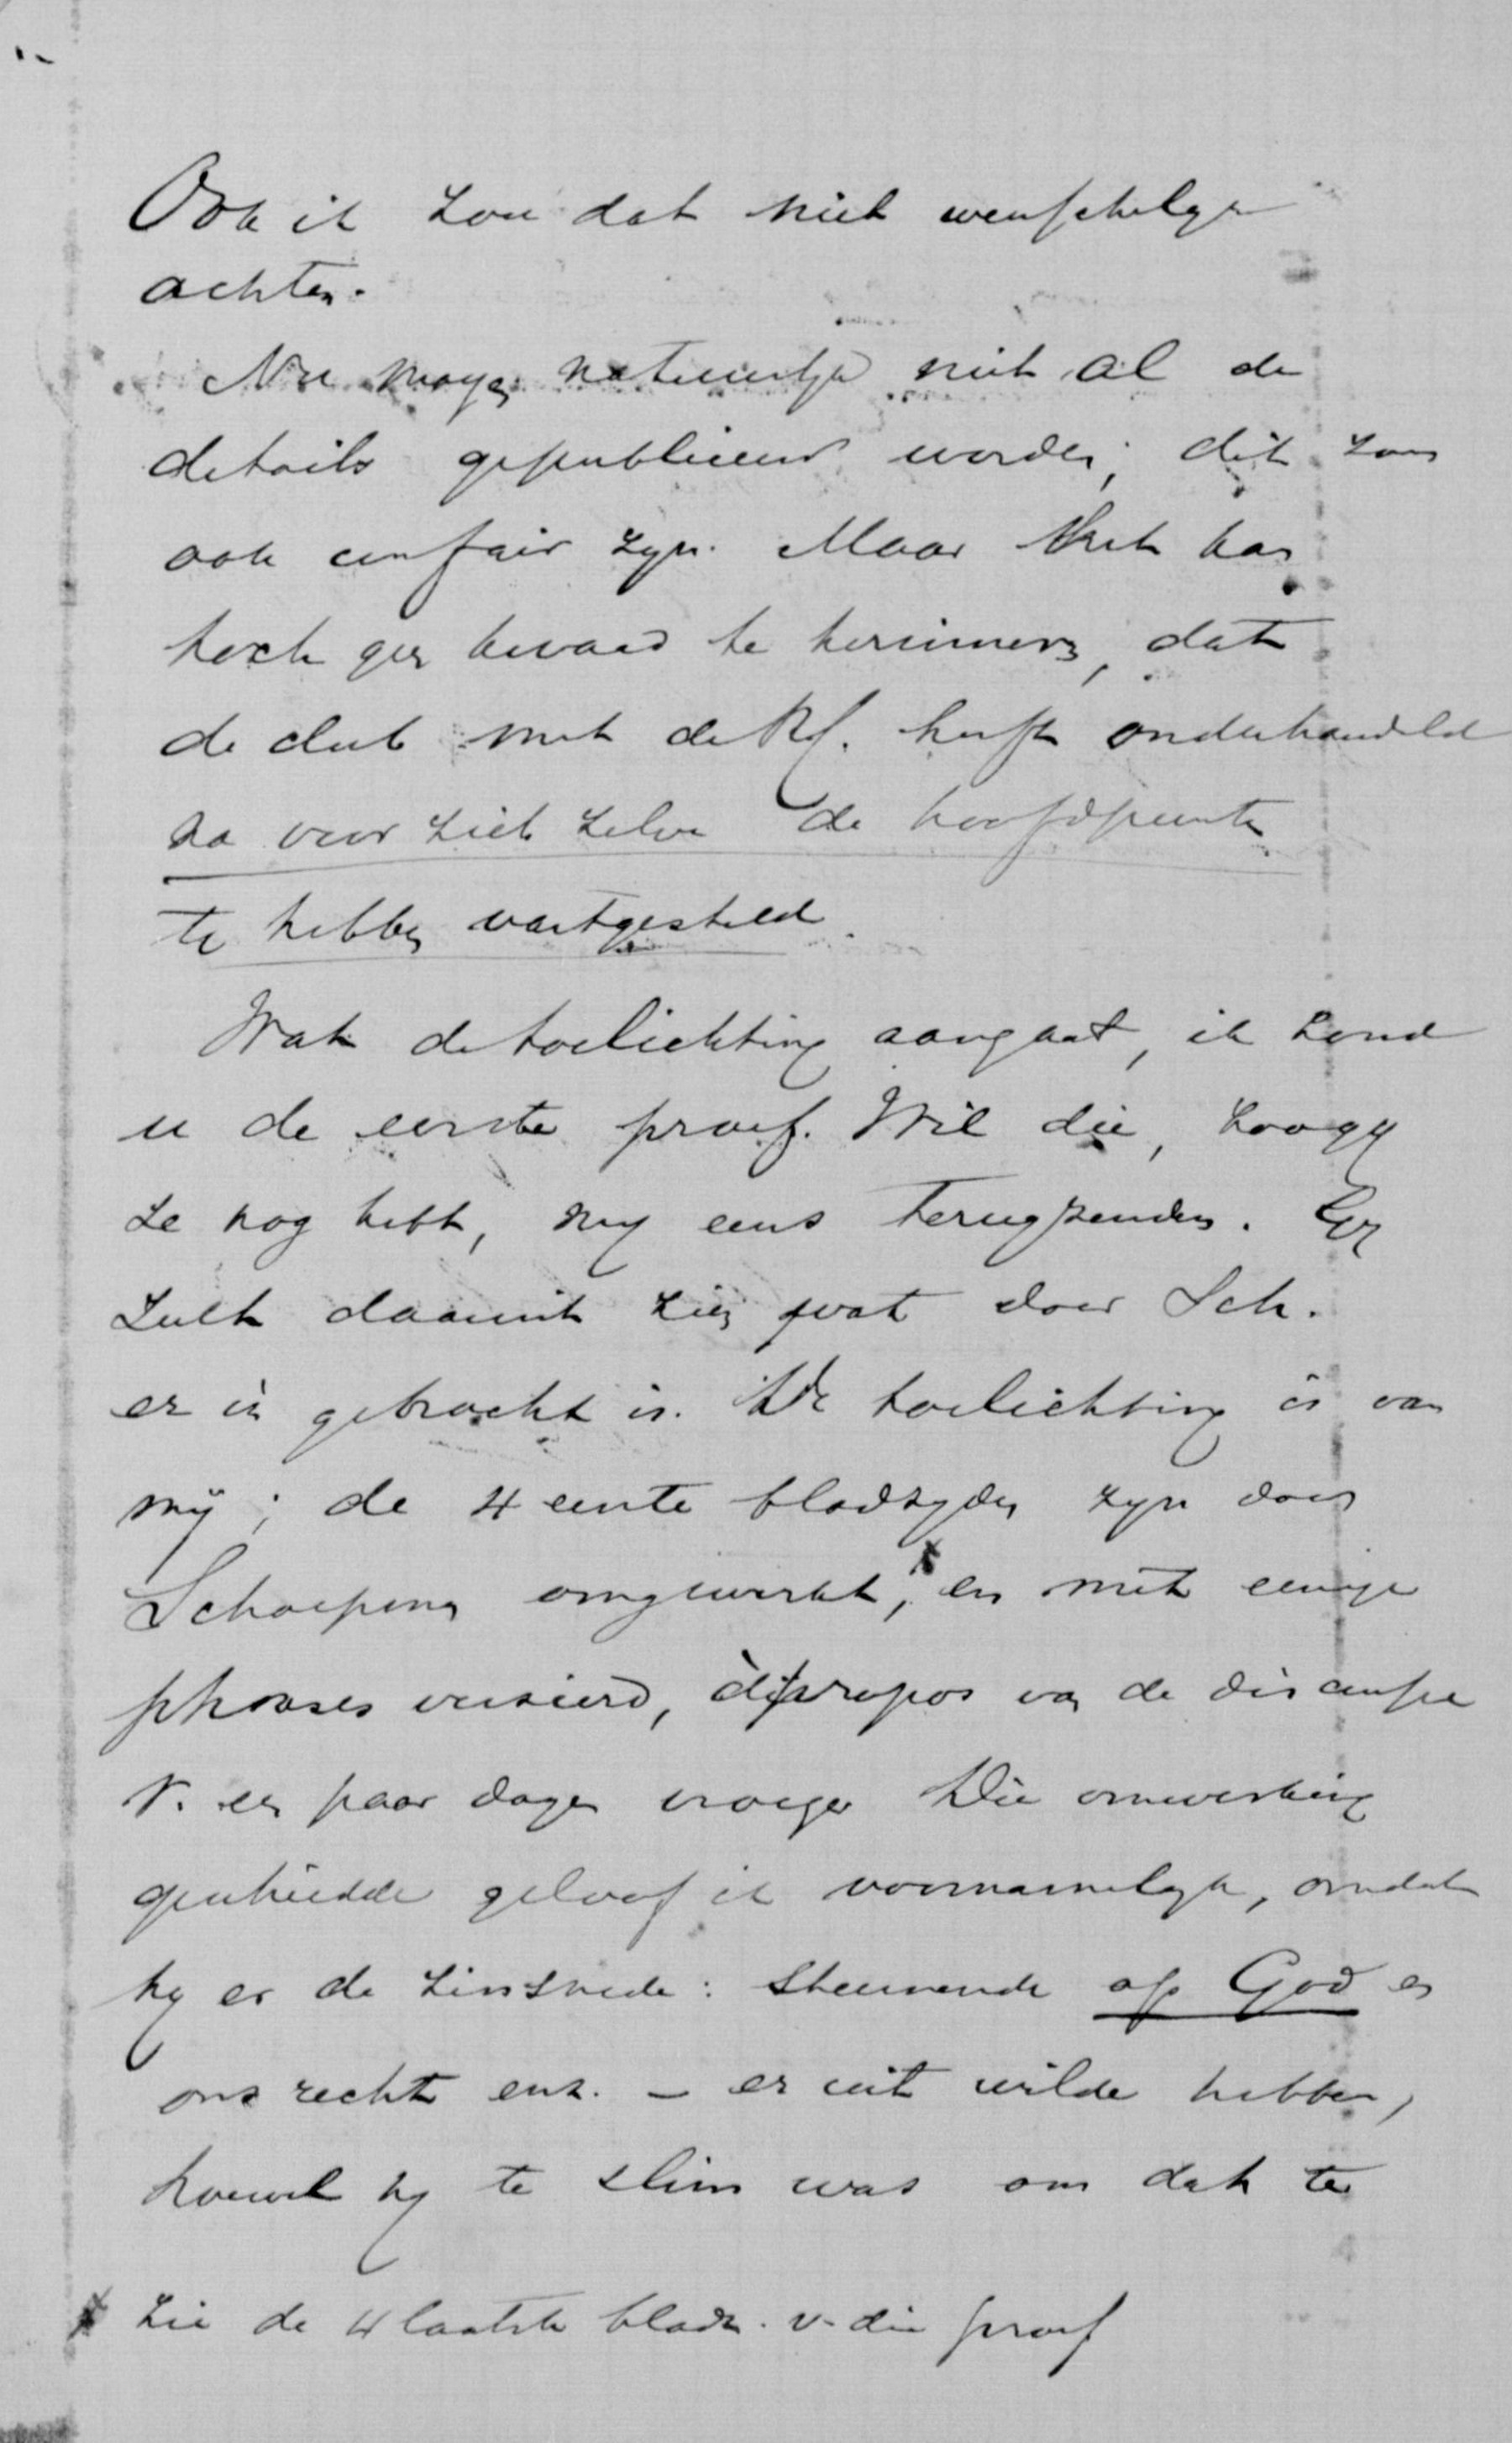 Ook ik zou dat niet wenschelyk
achten.
Nu mogen natuurlyk niet al de
details gepubliceerd worden; dit zou
ook unfair zyn. Maar het kan
toch geen kwaad te herinneren, dat
de club met de Rg. heeft onderhandeld
na voor zich zelve de hoofdpunten
te hebben vastgesteld.
Wat de toelichting aangaat, ik zond
u de eerste proef. Wil die, zoo gy
ze nog hebt, my eens terugzenden. Gy
zult daaruit zien wat door Sch.
er in gebracht is. De toelichting is van
mij; de 4 eerste bladzyden zyn door
Schaepman omgewerkt,x en met eenige
phrases versierd, àpropos van de discussie
v. een paar dagen vroeger. Die omwerking
geschiedde geloof ik voornamelyk, omdat
hy er de zinsnede: steunende op God en
ons recht enz. – er uit wilde hebben,
hoewel hy te slim was om dat te
x Zie de 4 laatste bladz. v. die proef